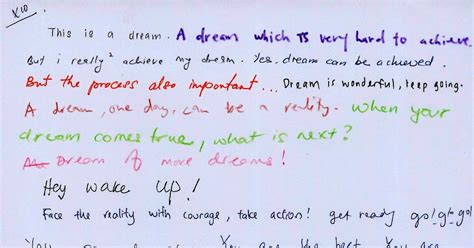 x10
This is a dream. A dream which is very hard to achieve.
But i really² achieve my dream. Yes, dream can be achieved.
But the process also important... Dream is wonderful, keep going.
A dream, one day, can be a reality. When your
dream comes true, what is next?
Dream of more dreams!
Hey wake up!
Face the reality with courage, take action! get ready go! go to go!
You You are the best You are